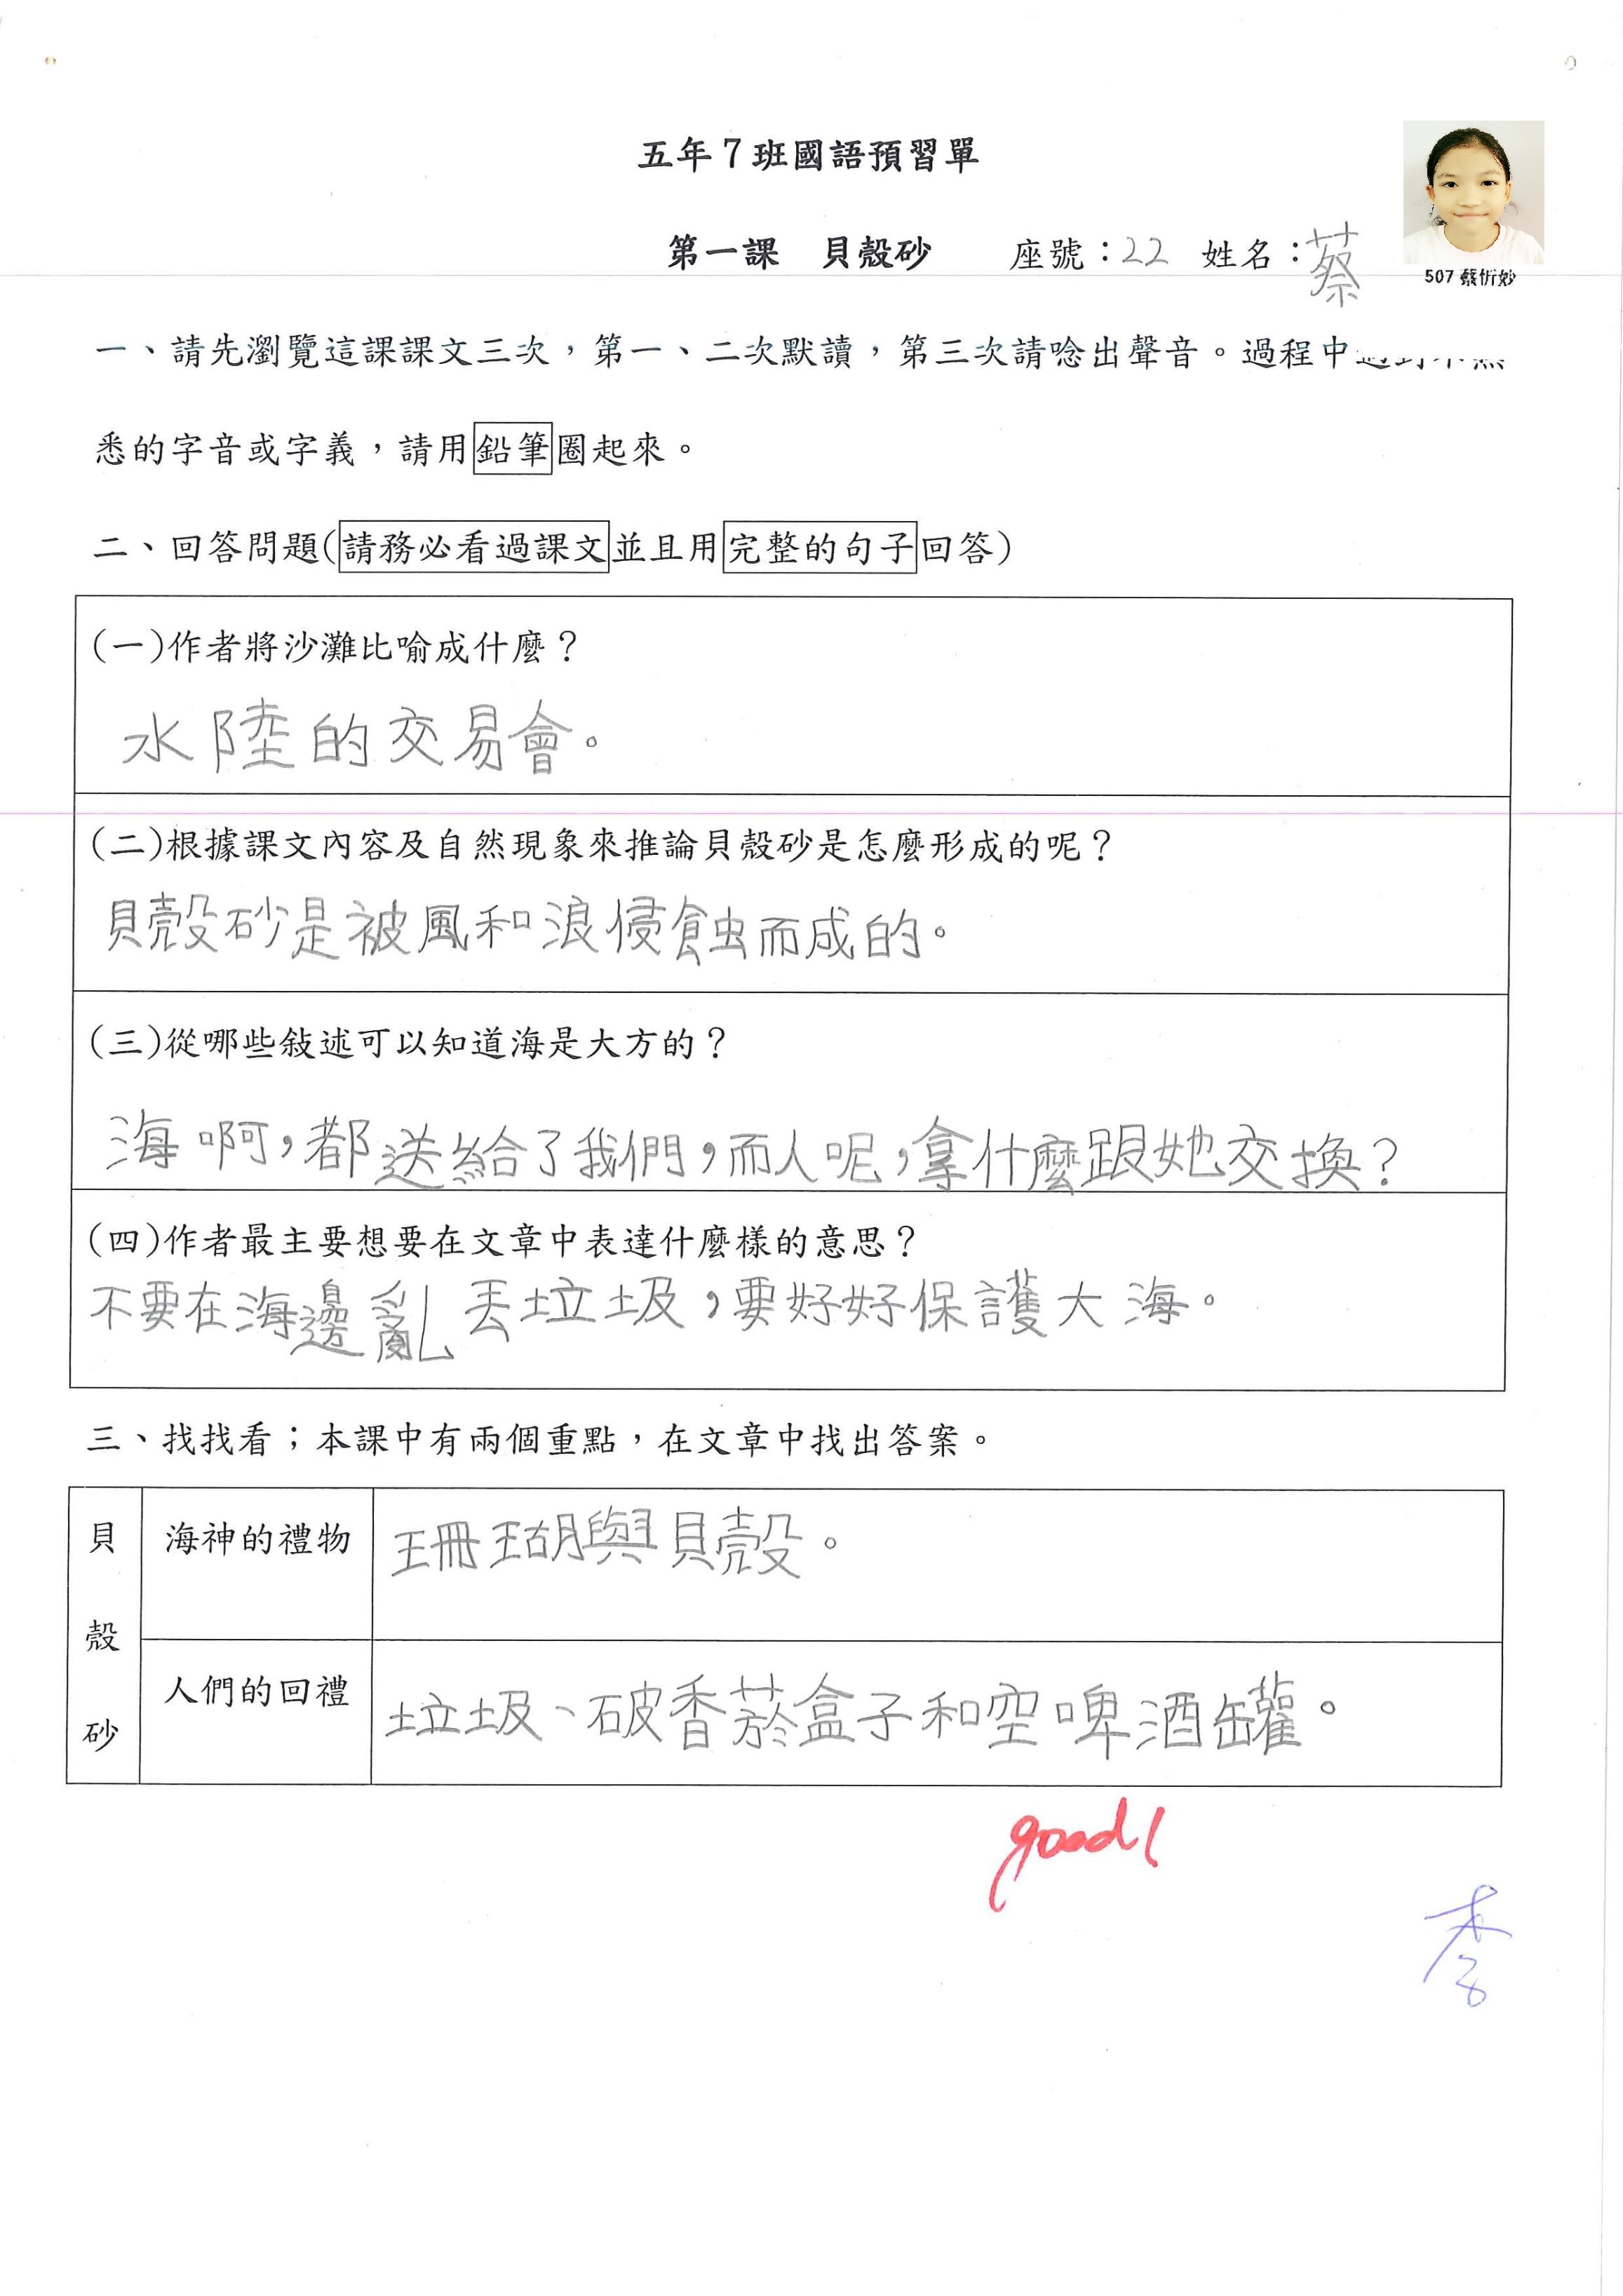 五年7班國語預習單
第一課 貝殼砂 座號：22 姓名：蔡
507 蔡忻妙
一、請先瀏覽這課課文三次，第一、二次默讀，第三次請唸出聲音。過程中
悉的字音或字義，請用鉛筆圈起來。
二、回答問題(請務必看過課文並且用完整的句子回答)
(一)作者將沙灘比喻成什麼？
水陸的交易會。
(二)根據課文內容及自然現象來推論貝殼砂是怎麼形成的呢？
貝殼砂是被風和浪侵蝕而成的。
(三)從哪些敍述可以知道海是大方的？
海啊，都送給了我們，而人呢，拿什麼跟她交換？
(四)作者最主要想要在文章中表達什麼樣的意思？
不要在海邊亂丟垃圾，要好好保護大海。
三、找找看；本課中有兩個重點，在文章中找出答案。
貝殼砂
海神的禮物 珊瑚與貝殼。
人們的回禮 垃圾、破香菸盒子和空啤酒罐。
good!